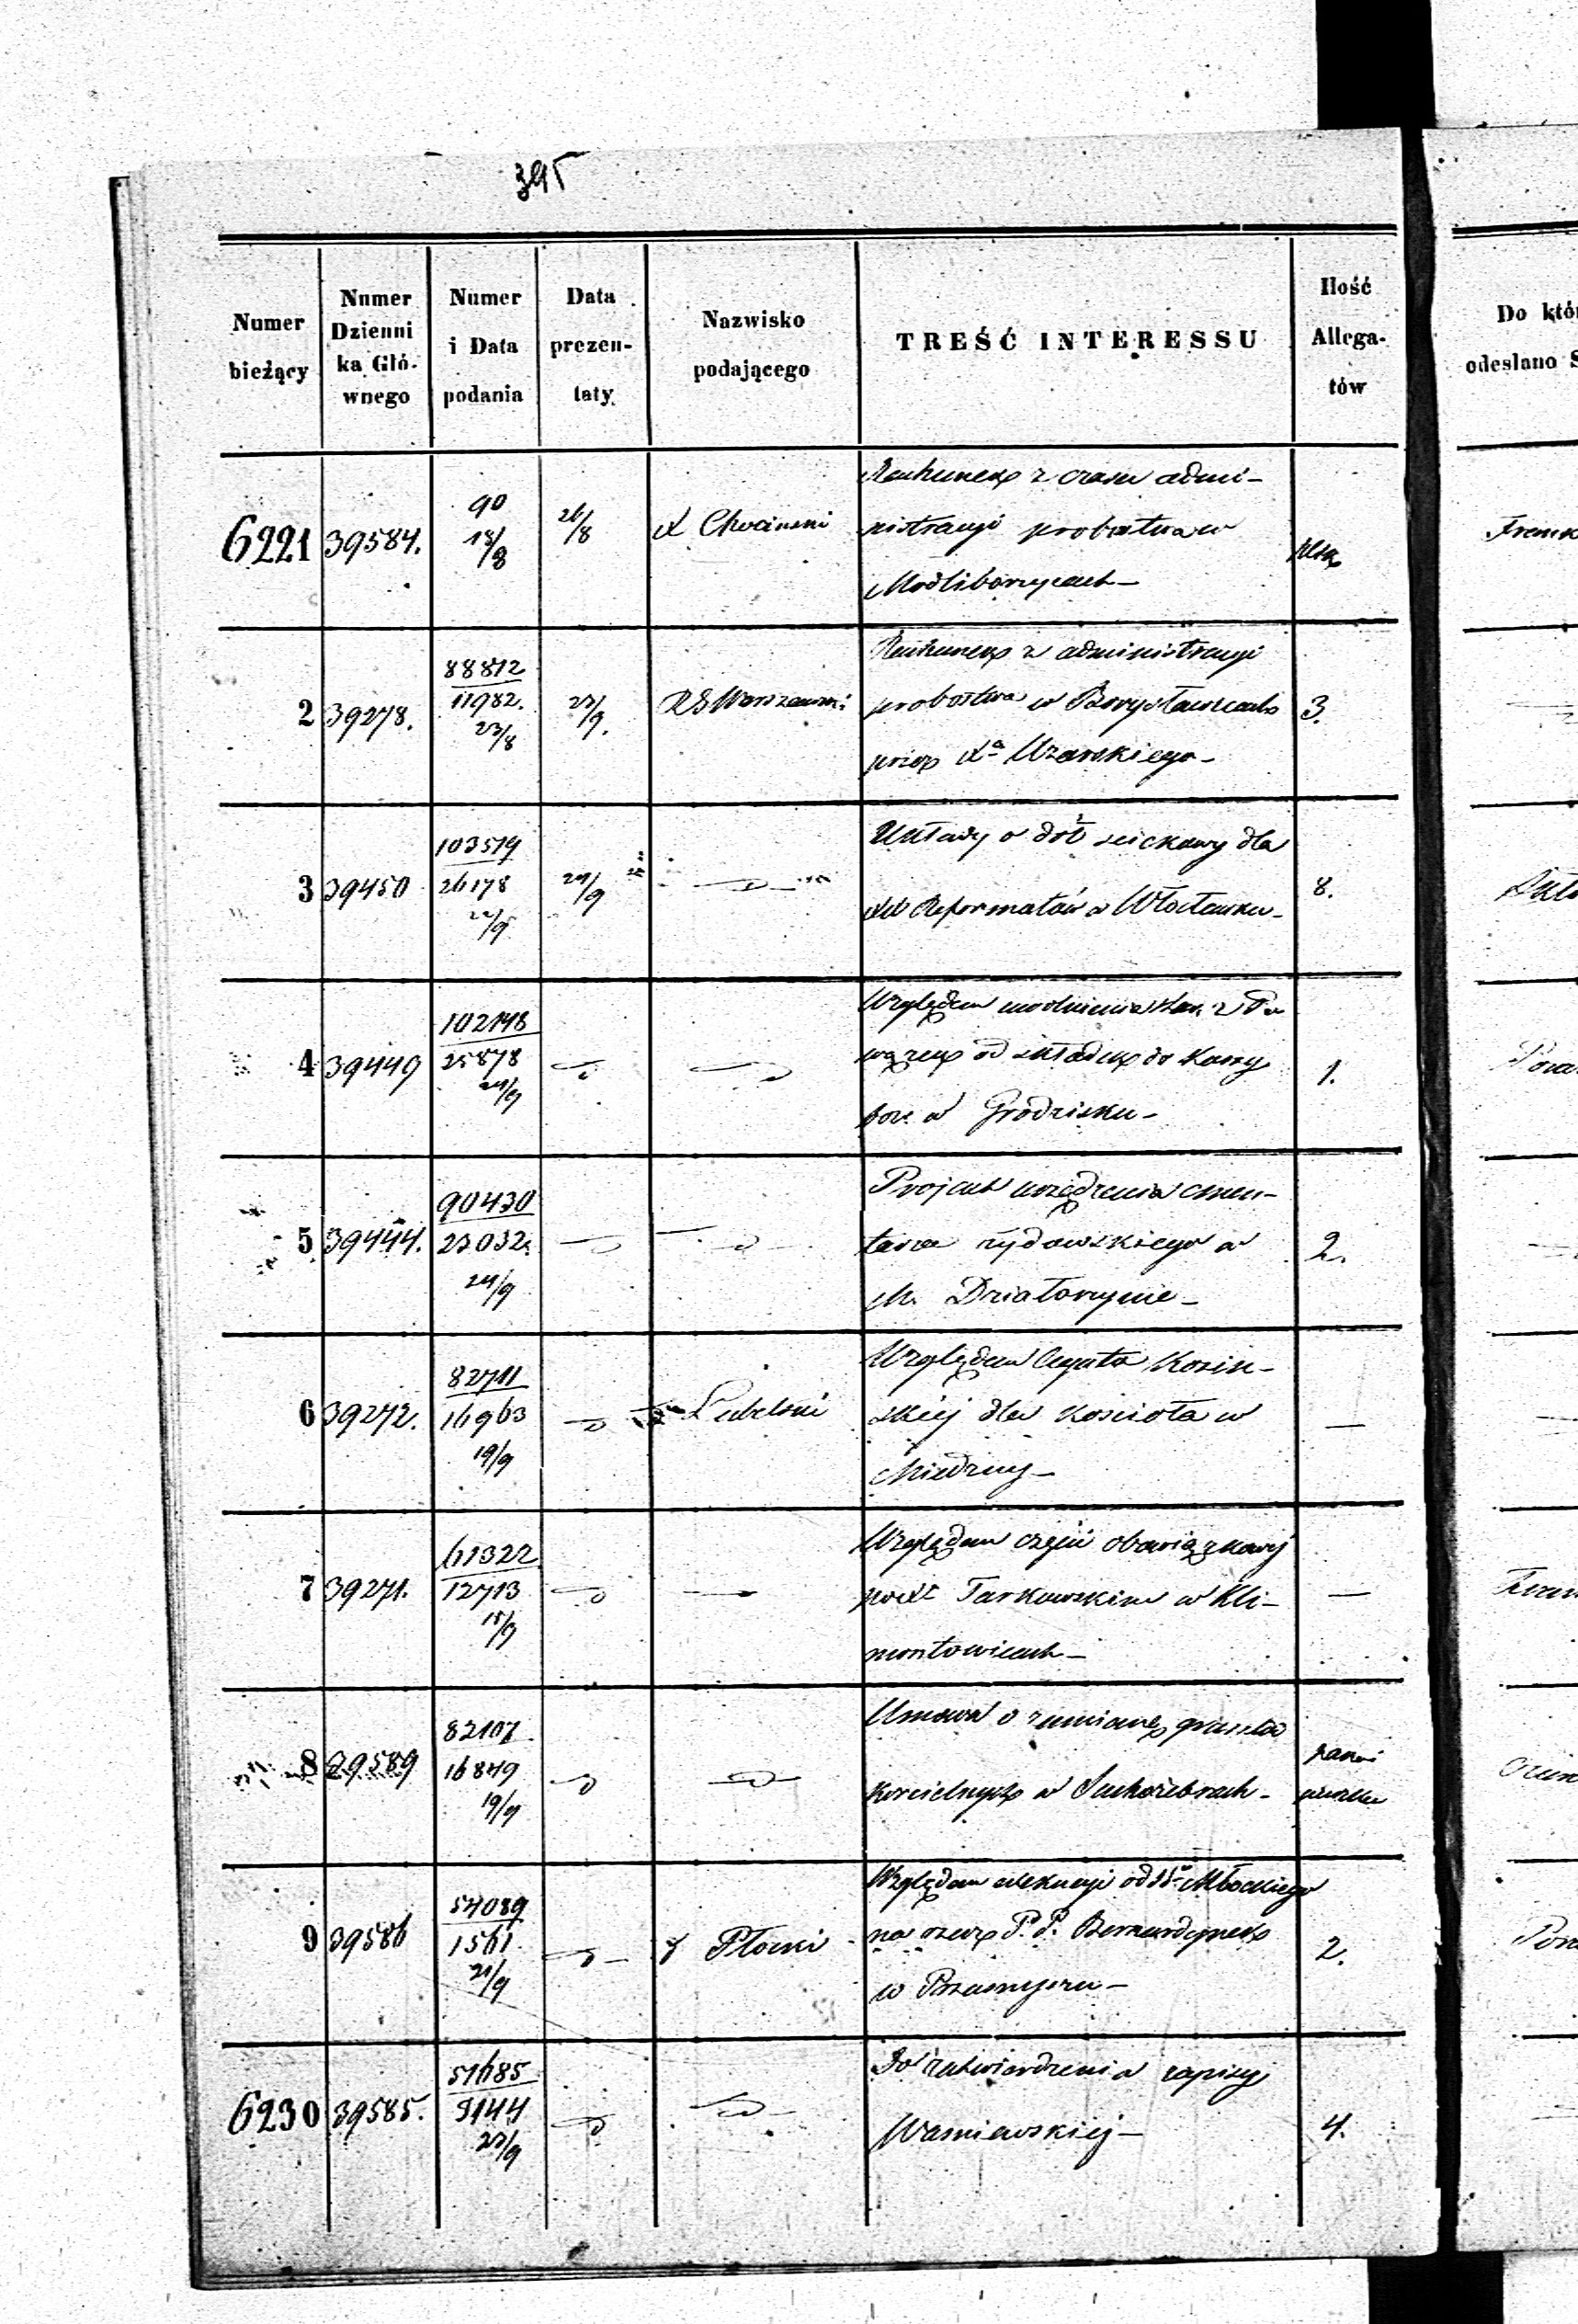 395
Numer bieżący
Numer Dzienni ka Głó- wnego
Numer i Data podania
Data prezen- taty
Nazwisko podającego
TREŚĆ INTERESSU
Ilość Allega- tów
Do któ
odesłano S
6221 39584. 90 18/8 26/8 X Chocinski
z czasu admi-
nistracyi probostwa w
Modliborzycach -
2 39278. 88812 11982. 23/8 23/9. RG Warszawski 3.
z administracyi
probostwa w Borysławicach
przez Xa Uzarskiego -
3 39450 103519 26178 22/9 24/9 8.
Układy o dół ściekowy dla
XX Reformatów w Włocławku -
4 39449 102148 25878 24/9 1.
Względem uwolnienia z Po
wązek od składek do Kassy
w Grodzisku -
5 39444. 90430 23032. 24/9 2.
Projekt urządzenia cmen-
tarza żydowskiego w
M. Działoszynie -
6 39272. 82711 16963 19/9 Lubelski —
Względem legatu Kosin-
skiej dla kościoła w
Miedzny -
7 39271. 61322 12713 15/9 —
Względem części obowiązkowej
po Xe Tarkowskim w Kli-
montowicach -
8 39589 82107 16849 19/9
Umowa o zamianę gruntów
kościelnych w Suchożebrach -
9 39586 54089 1561 21/9 Płocki 2.
Względem od Młockiego
na rzecz P. P. Bernardynek
w Przasnyszu -
6230 39585. 51685 3144 23/9 4.
Do zatwierdzenia zapisy
Waśniewskiej -